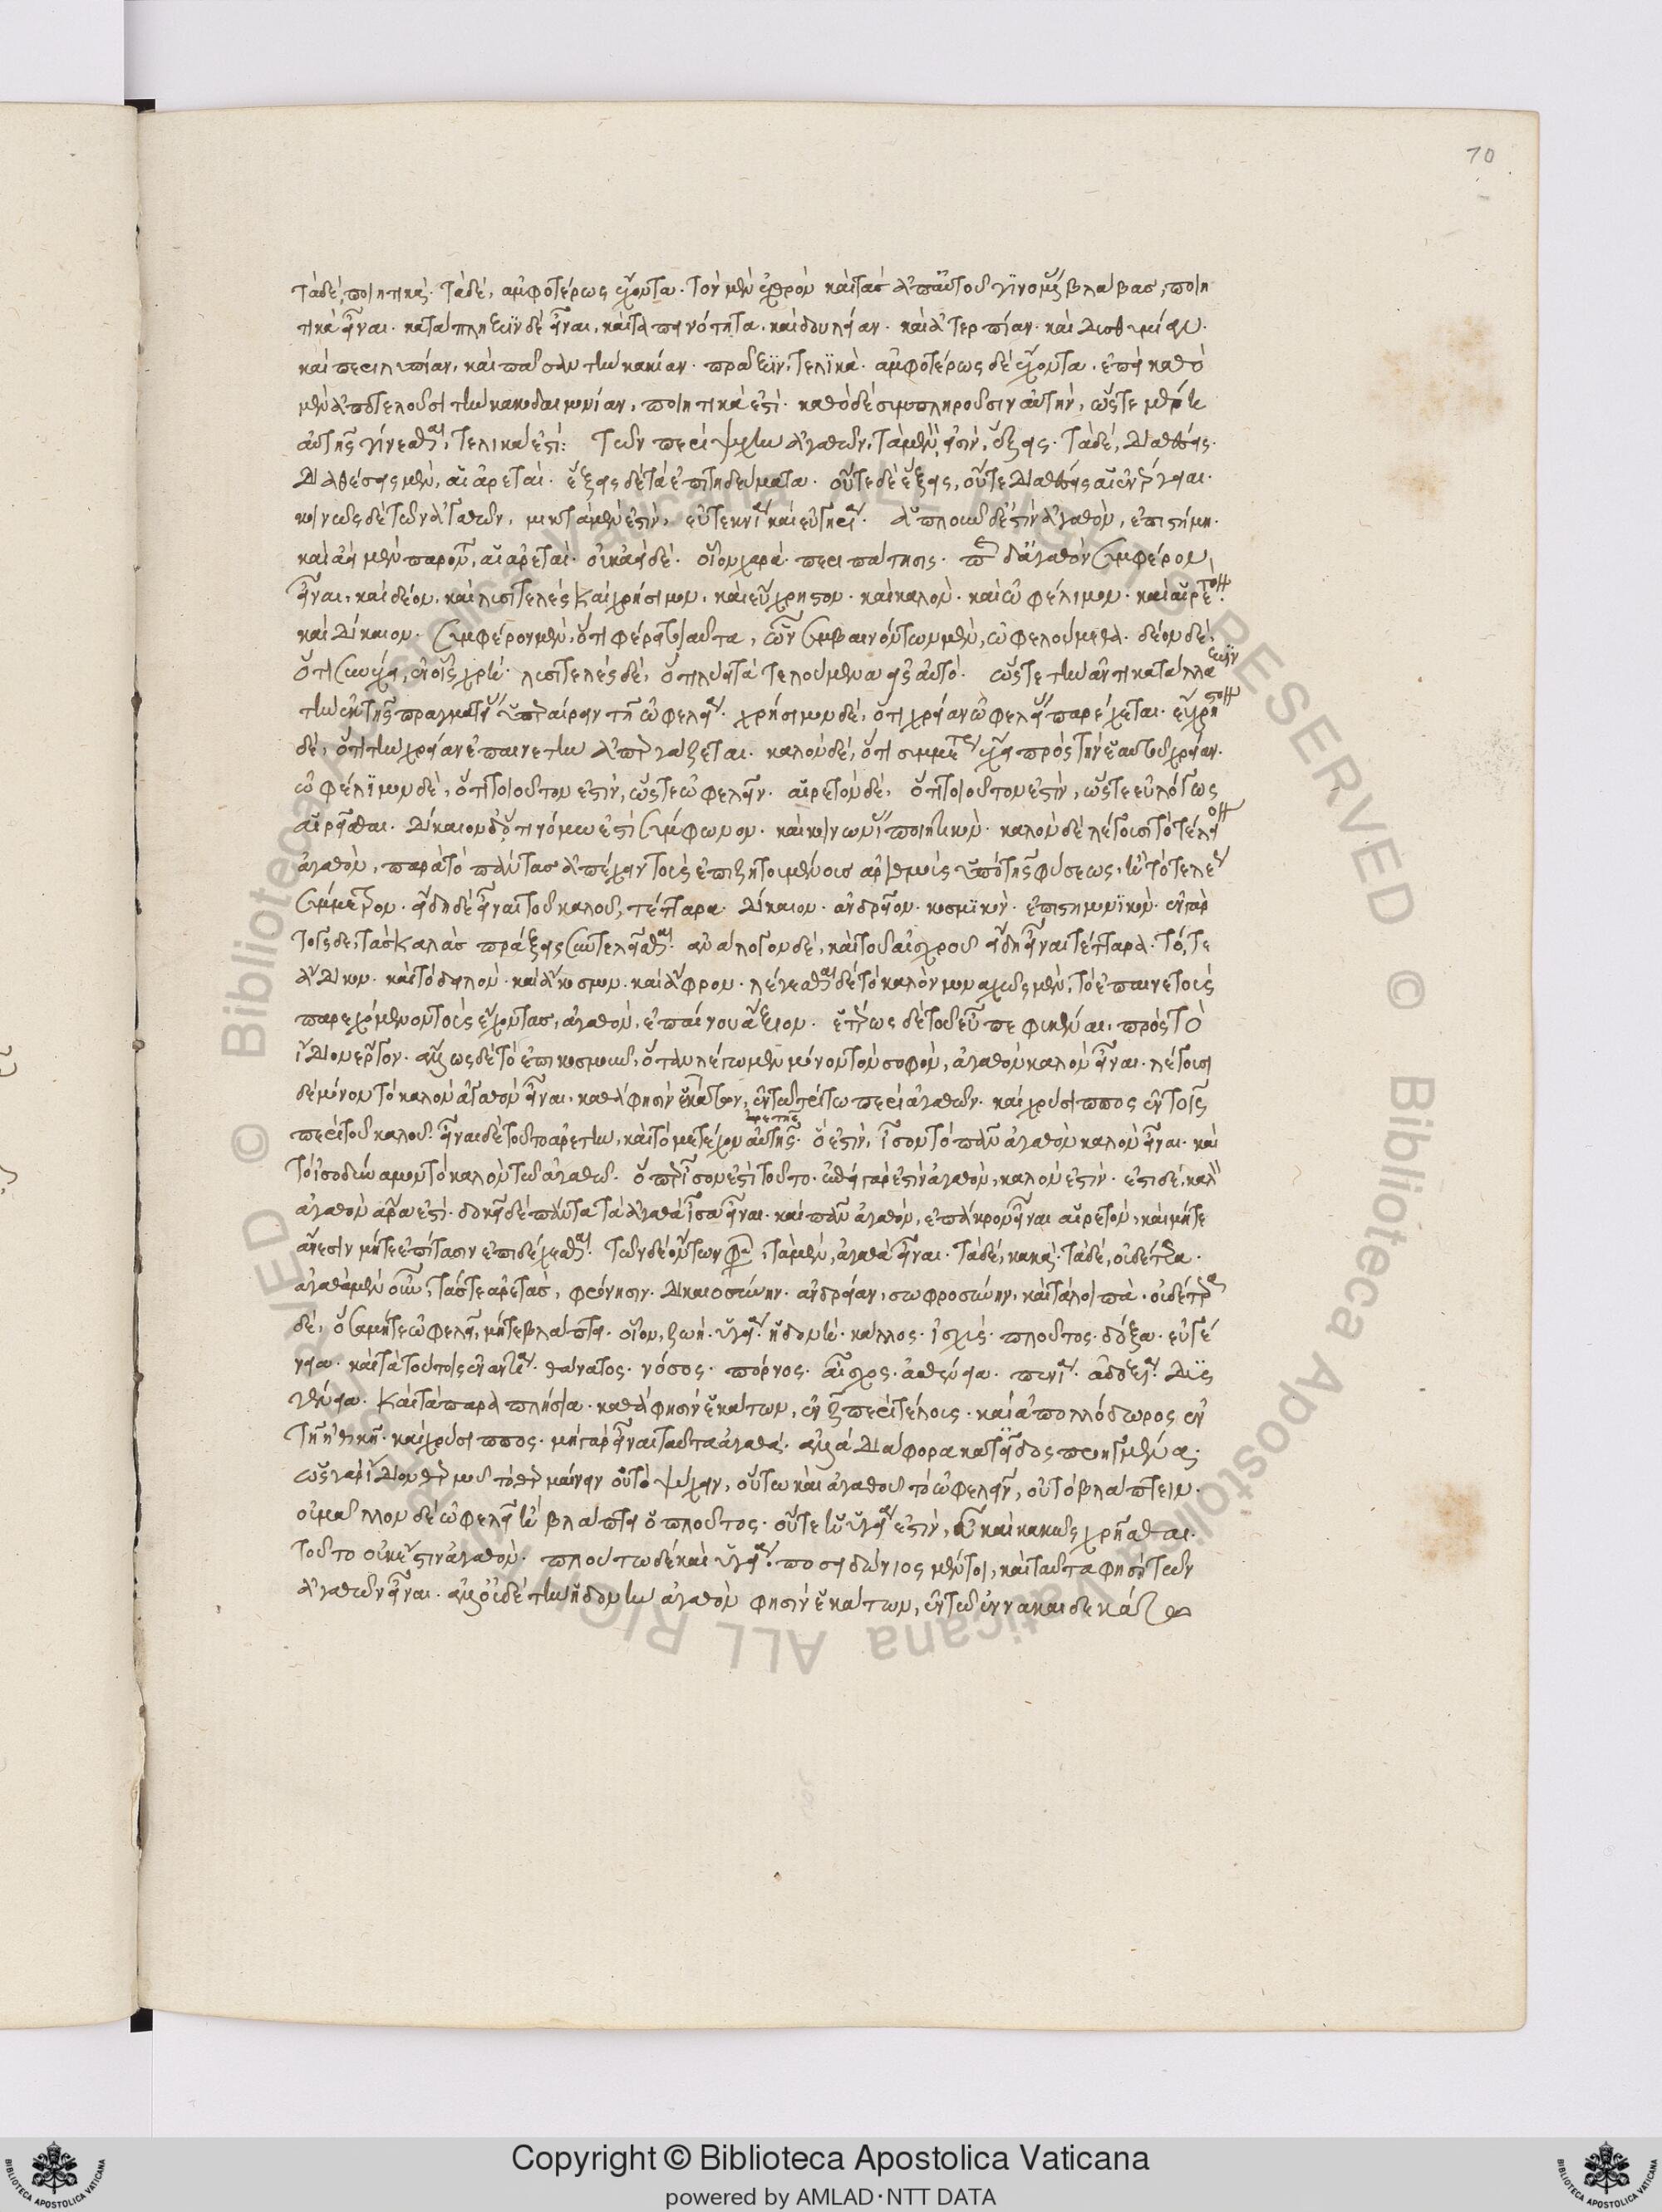 70
τὰ δὲ, ποιητικά· τὰ δὲ, ἀμφοτέρως ἔχοντα. τὸν μὲν ἐχθρὸν καὶ τὰς ἀπ' αὐτοῦ γινομένας βλάβας, ποιη
τικὰ εἶναι. κατάπληξιν δὲ εἶναι, καὶ ταπεινότητα. καὶ δουλείαν. καὶ ἀτερπίαν. καὶ δυσθυμίαν.
καὶ περιλυπίαν. καὶ πᾶσαν τὴν κακίαν. πρᾶξιν, τελικά. ἀμφοτέρως δὲ ἔχοντα. ἐπεὶ καθὸ
μὲν ἀποτελοῦσι τὴν κακοδαιμονίαν, ποιητικά ἐστι. καθὸ δὲ συμπληροῦσιν αὐτὴν, ὥστε μέρη
αὐτῆς γίνεσθαι, τελικά ἐστι: τῶν περὶ ψυχὴν ἀγαθῶν, τὰ μέν εἰσιν, ἕξεις. τὰ δὲ, διαθέσεις.
διαθέσεις μὲν, αἱ ἀρεταί. ἕξεις δὲ τὰ ἐπιτηδεύματα. οὔτε δὲ ἕξεις, οὔτε διαθέσεις αἱ ἐνέργειαι.
κοινῶς δὲ τῶν ἀγαθῶν, μικτὰ μέν ἐστιν, εὐτεκνία καὶ εὐγηρία. ἁπλοῦν δέ ἐστιν ἀγαθὸν, ἐπιστήμη.
καὶ ἀεὶ μὲν παρόντα, αἱ ἀρεταί. οὐκ ἀεὶ δέ. οἷον χαρά. περιπάτησις. πᾶν δ' ἀγαθὸν συμφέρον
εἶναι, καὶ δέον. καὶ λυσιτελὲς καὶ χρήσιμον. καὶ εὔχρηστον. καὶ καλὸν. καὶ ὠφέλιμον. καὶ αἱρετόν.
καὶ δίκαιον. συμφέρον μὲν, ὅτι φέρει τοιαῦτα, ὧν συμβαινόντων μὲν, ὠφελούμεθα. δέον δὲ,
ὅτι συνέχει, ἐν οἷς χρή. λυσιτελὲς δὲ, ὅτι λύει τὰ τελούμενα εἰς αὐτό. ὥστε τὴν ἀντικατάλλαξιν
τὴν ἐκ τῆς πραγματείας ὑπεραίρειν τῇ ὠφελείᾳ. χρήσιμον δὲ, ὅτι χρείαν ὠφελείας παρέχεται. εὔχρηστον
δὲ, ὅτι τὴν χρείαν ἐπαινετὴν ἀπεργάζεται. καλὸν δὲ, ὅτι συμμέτρως ἔχει πρὸς τὴν ἑαυτοῦ χρείαν.
ὠφέλιμον δὲ, ὅτι τοιοῦτον ἐστὶν, ὥστε ὠφελεῖν. αἱρετὸν δὲ, ὅτι τοιοῦτον ἐστὶν, ὥστε εὐλόγως
αἱρεῖσθαι. δίκαιον δὲ ὅτι νόμῳ ἐστὶ σύμφωνον. καὶ κοινωνίας ποιητικὸν. καλὸν δὲ λέγουσι τὸ τέλειον
ἀγαθὸν, παρὰ τὸ πάντας ἀπέχειν τοὺς ἐπιζητουμένους ἀριθμοὺς ὑπὸ τῆς φύσεως, ἢ τὸ τελείως
σύμμετρον. εἴδη δὲ εἶναι τοῦ καλοῦ, τέτταρα. δίκαιον. ἀνδρεῖον. κοσμικὸν. ἐπιστημονικὸν. ἐν γὰρ
τοῖσδε, τὰς καλὰς πράξεις συντελεῖσθαι. ἀνάλογον δὲ, καὶ τοῦ αἰσχροῦ εἴδη εἶναι τέτταρα. τό, τε
ἄδικον. καὶ τὸ δειλὸν. καὶ ἄκοσμον. καὶ ἄφρον. λέγεσθαι δὲ τὸ καλὸν μοναχῶς μὲν, τὸ ἐπαινετοὺς
παρεχόμενον τοὺς ἔχοντας, ἀγαθὸν, ἐπαίνου ἄξιον. ἑτέρως δὲ τὸ εὖ πεφυκέναι, πρὸς τὸ
ἴδιον ἔργον. ἄλλως δὲ τὸ ἐπικοσμοῦν, ὅταν λέγωμεν μόνον τὸν σοφὸν, ἀγαθὸν καλὸν εἶναι. λέγουσι
δὲ μόνον τὸ καλὸν ἀγαθὸν εἶναι. καθά φησιν ἑκάτων, ἐν τῷ τρίτῳ περὶ ἀγαθῶν. καὶ χρύσιππος ἐν τοῖς
περὶ τοῦ καλοῦ. εἶναι δὲ τοῦτο ἀρετὴν, καὶ τὸ μετέχον ἀρετῆς αὐτῆς. ὅ ἐστιν, ἴσον τὸ πᾶν ἀγαθὸν καλὸν εἶναι. καὶ
τὸ ἰσοδυναμον τὸ καλὸν τῷ ἀγαθῷ. ὅπερ ἴσον ἐστὶ τοῦτο. ἐπεὶ γάρ ἐστιν ἀγαθὸν, καλόν ἐστιν. ἔστι δὲ, καλὸν
ἀγαθὸν ἄρα ἐστί. δοκεῖ δὲ πάντα τὰ ἀγαθὰ ἴσα εἶναι. καὶ πᾶν ἀγαθὸν, ἐπ' ἄκρον εἶναι αἱρετὸν, καὶ μήτε
ἄνεσιν μήτε ἐπίτασιν ἐπιδέχεσθαι. τῶν δὲ ὄντων φασὶ, τὰ μὲν, ἀγαθὰ εἶναι. τὰ δὲ, κακά. τὰ δὲ, οὐδέτερα.
ἀγαθὰ μὲν οὖν, τάς τε ἀρετὰς, φρόνησιν. δικαιοσύνην. ἀνδρείαν, σωφροσύνην, καὶ τὰ λοιπὰ. οὐδέτερα
δὲ, ὅσα μήτε ὠφελεῖ, μήτε βλάπτει. οἷον, ζωή. ὑγεία. ἡδονὴ. κάλλος. ἰσχὺς. πλοῦτος. δόξα. εὐγέ
νεια. καὶ τὰ τούτοις ἐναντία. θάνατος. νόσος. πόρνος. αἶσχος. ἀσθένεια. πενία. ἀδοξία. δυσ
γένεια. καὶ τὰ παραπλήσια. καθά φησιν ἑκάτων, ἐν ζ περὶ τέλους. καὶ ἀπολλόδωρος ἐν
τῇ ἠθικῇ. καὶ χρύσιππος. μὴ γὰρ εἶναι ταῦτα ἀγαθά. ἀλλὰ διάφορα κατ' εἶδος προηγμένα.
ὡς γὰρ ἴδιον θερμοῦ τὸ θερμαίνειν οὐ τὸ ψύχειν, οὕτω καὶ ἀγαθοῦ τὸ ὠφελεῖν, οὐ τὸ βλάπτειν.
οὐ μᾶλλον δὲ ὠφελεῖ ἢ βλάπτει ὁ πλοῦτος. οὔτε ἡ ὑγεία ἐστὶν, εὖ καὶ κακῶς χρῆσθαι.
τοῦτο οὐκ ἔστιν ἀγαθὸν. πλούτῳ δὲ καὶ ὑγείᾳ. ποσειδώνιος μέντοι, καὶ ταῦτα φησὶ τῶν
ἀγαθῶν εἶναι. ἀλλ' οὐδὲ τὴν ἡδονὴν ἀγαθὸν φησὶν ἑκάτων, ἐν τῷ ἐννακαιδεκάτῳ
Copyright © Biblioteca Apostolica Vaticana
powered by AMLAD·NTT DATA